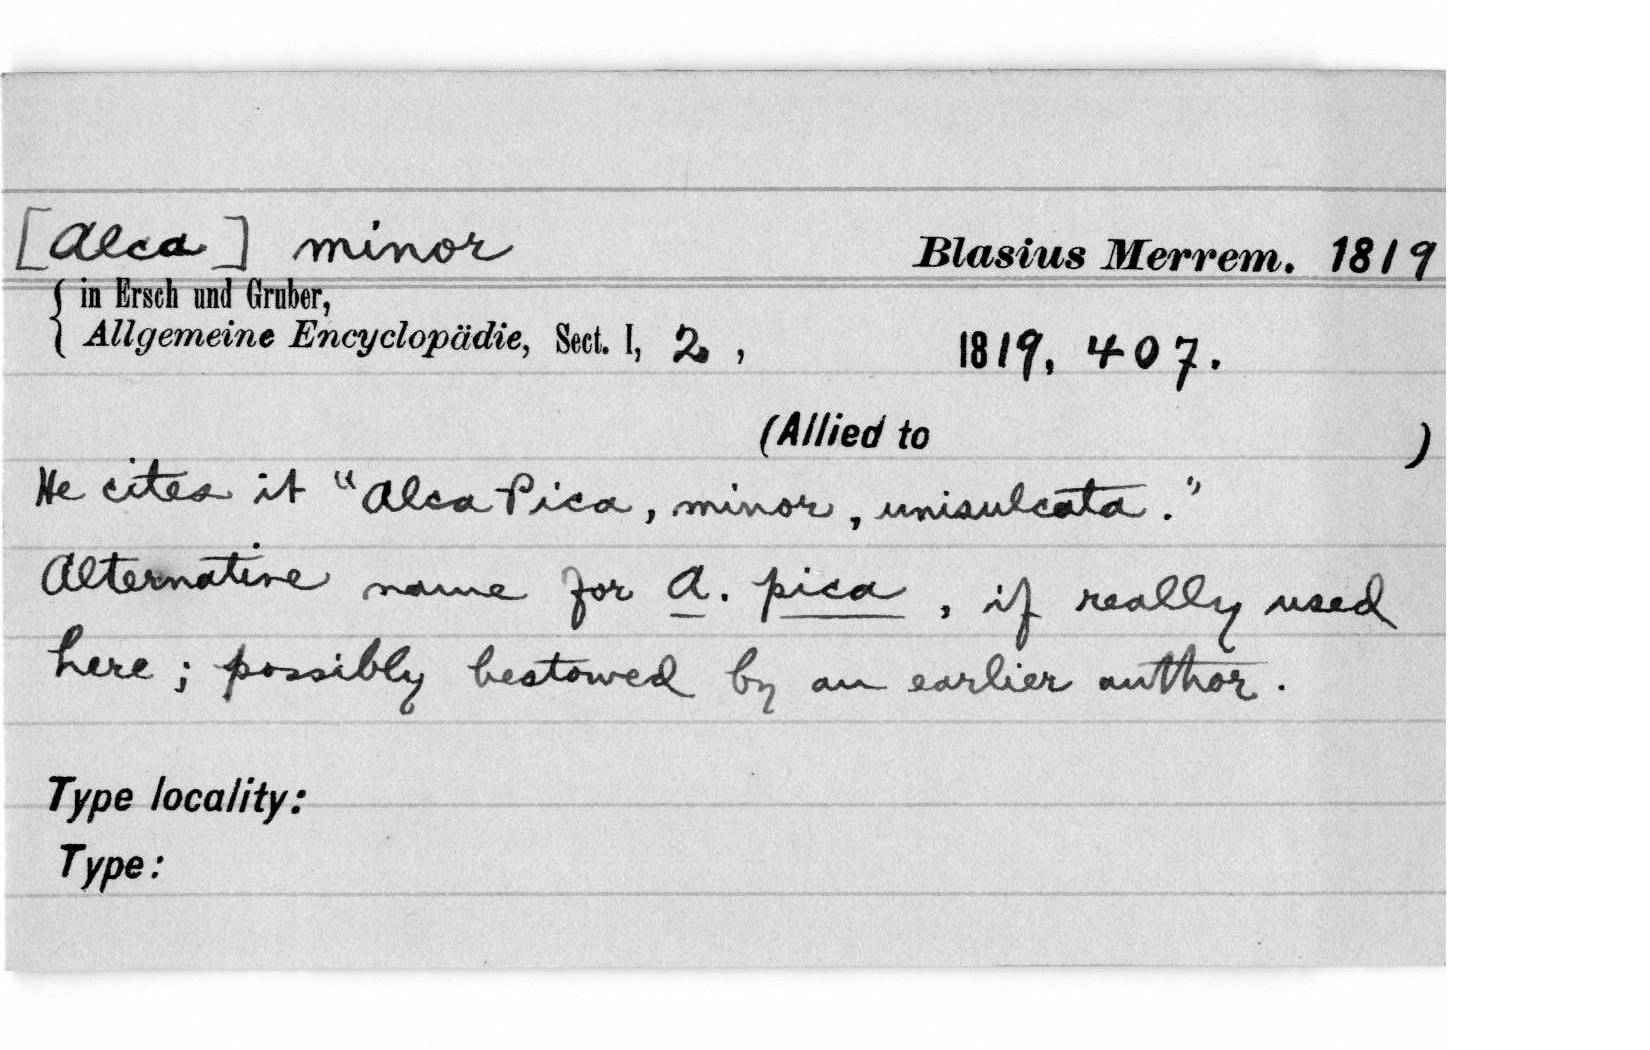 [Alca] minor Blasius Merrem. 1819
{ in Ersch und Gruber,
Allgemeine Encyclopädie, Sect. I, 2, 1819, 407.
(Allied to )
He cites it "Alca Pica, minor, unisulcata."
Alternative name for A. pica, if really used
here; possibly bestowed by an earlier author.
Type locality:
Type: